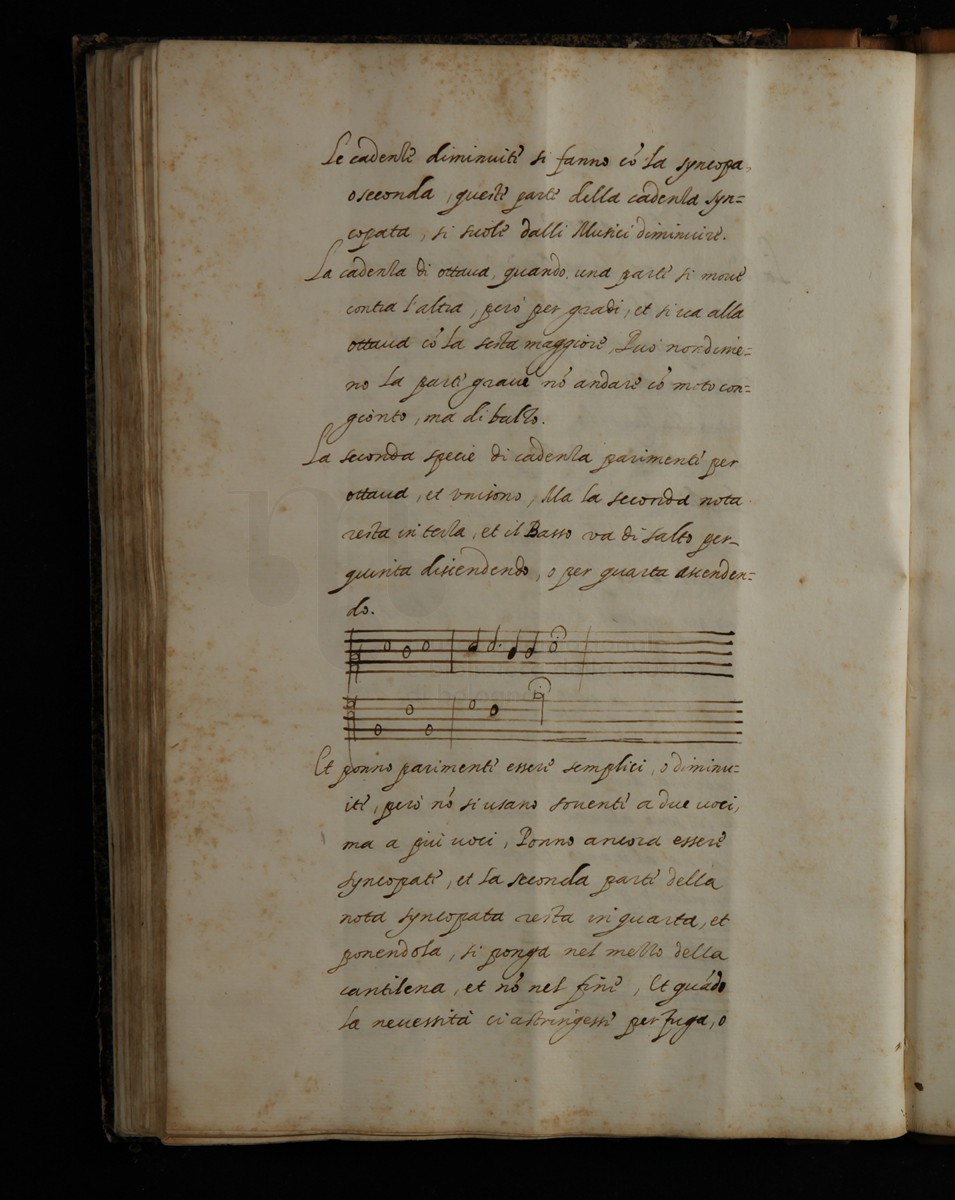 Le cadenze diminuite si fanno cō la syncopa,
o seconda, queste parte della cadenza syn=
copata, si suole dalli Musici diminuire.
La cadenza di ottava, quando una parte si move
contra l'altra, però per gradi, et si va alla
ottava cō la sesta maggiore, Può nondime=
no la parte grave nō andare cō moto con=
gionto, ma di balzo.
La seconda specie di cadenza parimente per
ottava, et unisono, Ma la seconda nota
resta in terza, et il Basso va di salto per
quinta discendendo, o per quarta ascenden=
do.
Et ponno parimente essere semplici, o diminu=
ite, però nō si usano sovente a due voci,
ma a più voci, Ponno ancora essere
syncopate, et la seconda parte della
nota syncopata resta in quarta, et
ponendola, si ponga nel mezzo della
cantilena, et nō nel fine, Et quādo
la necessità ci astringesse per fuga, o